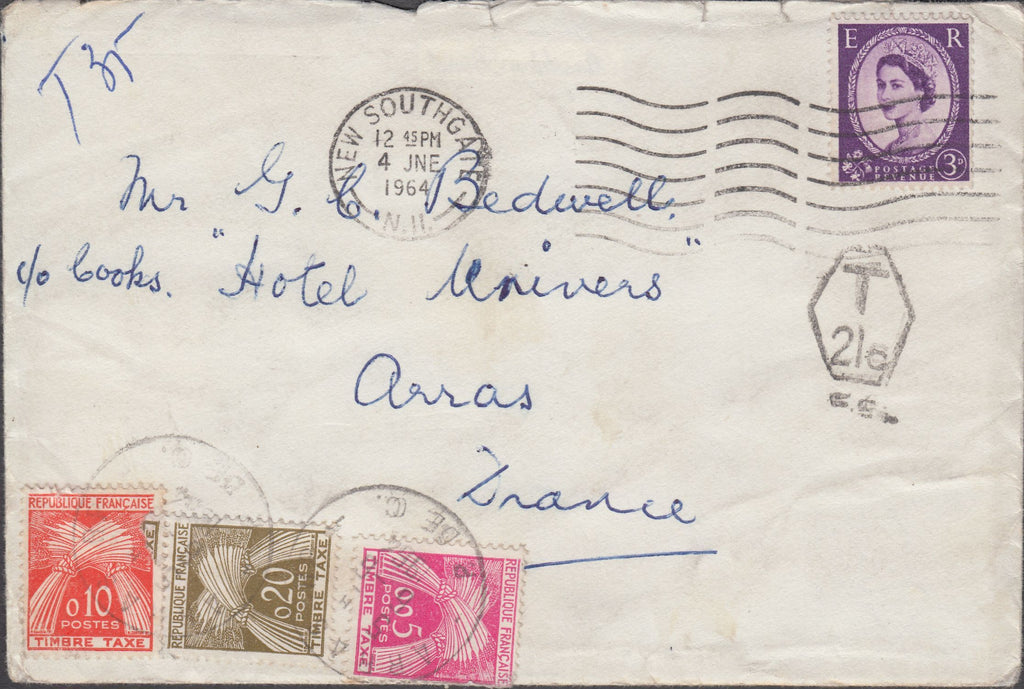 T 35
E R
POSTAGE
REVENUE
3D
NEW SOUTHGATE
12 45 PM
4 JNE
1964
N.11.
Mr G. C. Bedwell.
c/o Cooks. "Hotel Univers"
Arras
France
T
21c
REPUBLIQUE FRANÇAISE
0,10
POSTES
TIMBRE TAXE
REPUBLIQUE FRANÇAISE
0,20
POSTES
TIMBRE TAXE
REPUBLIQUE FRANÇAISE
0,05
POSTES
TIMBRE TAXE
DE C.
DE C.